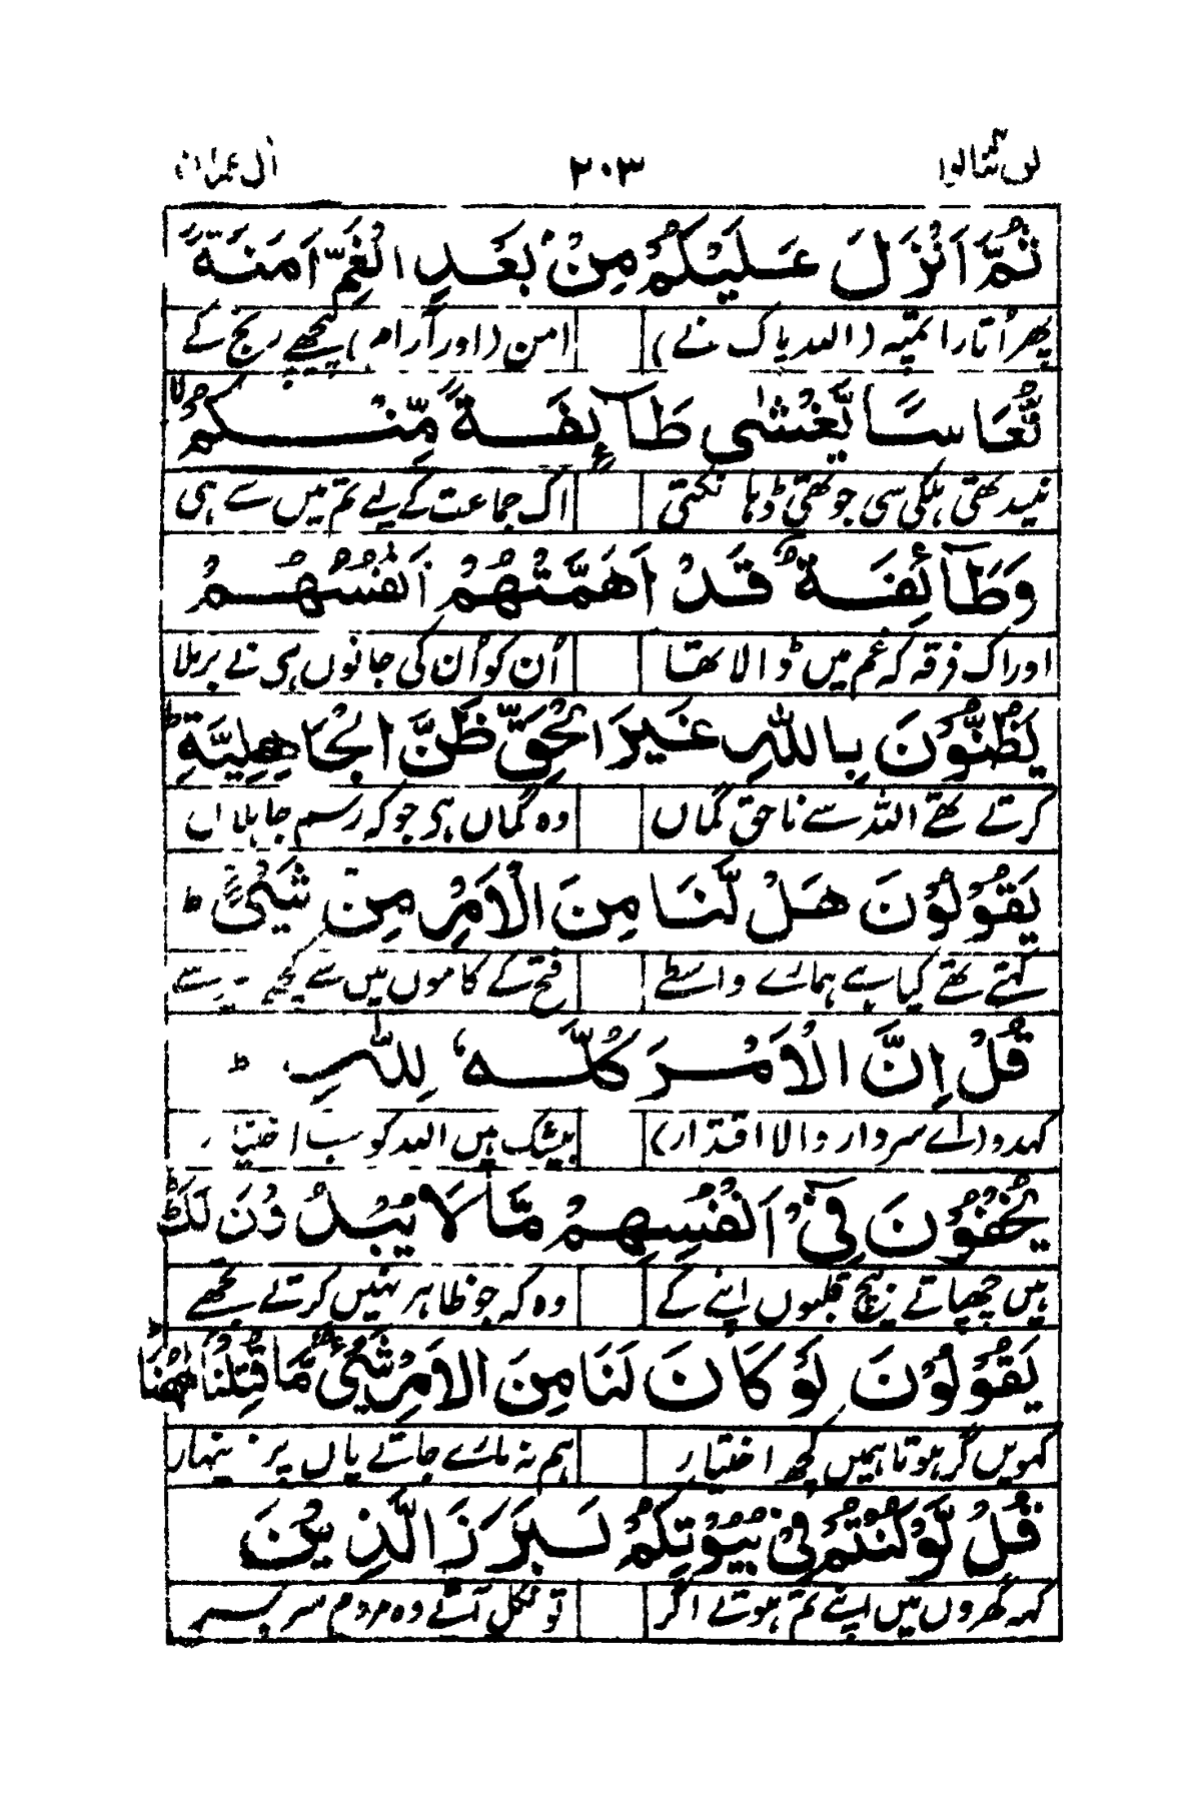 لن تنالوا ۲۰۳ اٰل عمران
ثُمَّ اَنْزَلَ عَلَيْكُمْ مِنْۢ بَعْدِ الْغَمِّ اَمَنَةً
پھر اُتارا تمپہ (اللہ پاک نے) امن (اور آرام) پیچھے رنج کے
نُّعَاسًا يَّغْشٰى طَآئِفَةً مِّنْكُمْ ۙ
نیند تھی ہلکی سی جو تھی ڈہا نکتی اک جماعت کے لیے تم میں سے ہی
وَطَآئِفَةٌ قَدْ اَهَمَّتْهُمْ اَنْفُسُهُمْ
اور اک فرقہ کہ غم میں ڈالا تھا اُن کو اُن کی جانوں ہی نے برملا
يَظُنُّوْنَ بِاللّٰهِ غَيْرَ الْحَقِّ ظَنَّ الْجَاهِلِيَّةِ ؕ
کرتے تھے اللہ سے ناحق گماں وہ گماں ہی جو کہ رسم جاہلاں
يَقُوْلُوْنَ هَلْ لَّنَا مِنَ الْاَمْرِ مِنْ شَيْءٍ ؕ
کہتے تھے کیا ہے ہمارے واسطے فتح کے کاموں میں سے کچھ
قُلْ اِنَّ الْاَمْرَ كُلَّهٗ لِلّٰهِ ؕ
کہدو (اے سردار والا اقتدار) بیشک ہیں اللہ کو سب اختیار
يُخْفُوْنَ فِيْۤ اَنْفُسِهِمْ مَّا لَا يُبْدُوْنَ لَكَ ؕ
ہیں چھپاتے بیچ قلبوں اپنے کے وہ کہ جو ظاہر نہیں کرتے تجھے
يَقُوْلُوْنَ لَوْ كَانَ لَنَا مِنَ الْاَمْرِ شَيْءٌ مَّا قُتِلْنَا هٰهُنَا
کہویں گر ہوتا ہمیں کچھ اختیار ہم نہ مارے جاتے یاں پر
قُلْ لَّوْ كُنْتُمْ فِيْ بُيُوْتِكُمْ لَبَرَزَ الَّذِيْنَ
کہہ گھروں میں اپنے تم ہوتے اگر تو نکل آتے وہ مردم سر بسر